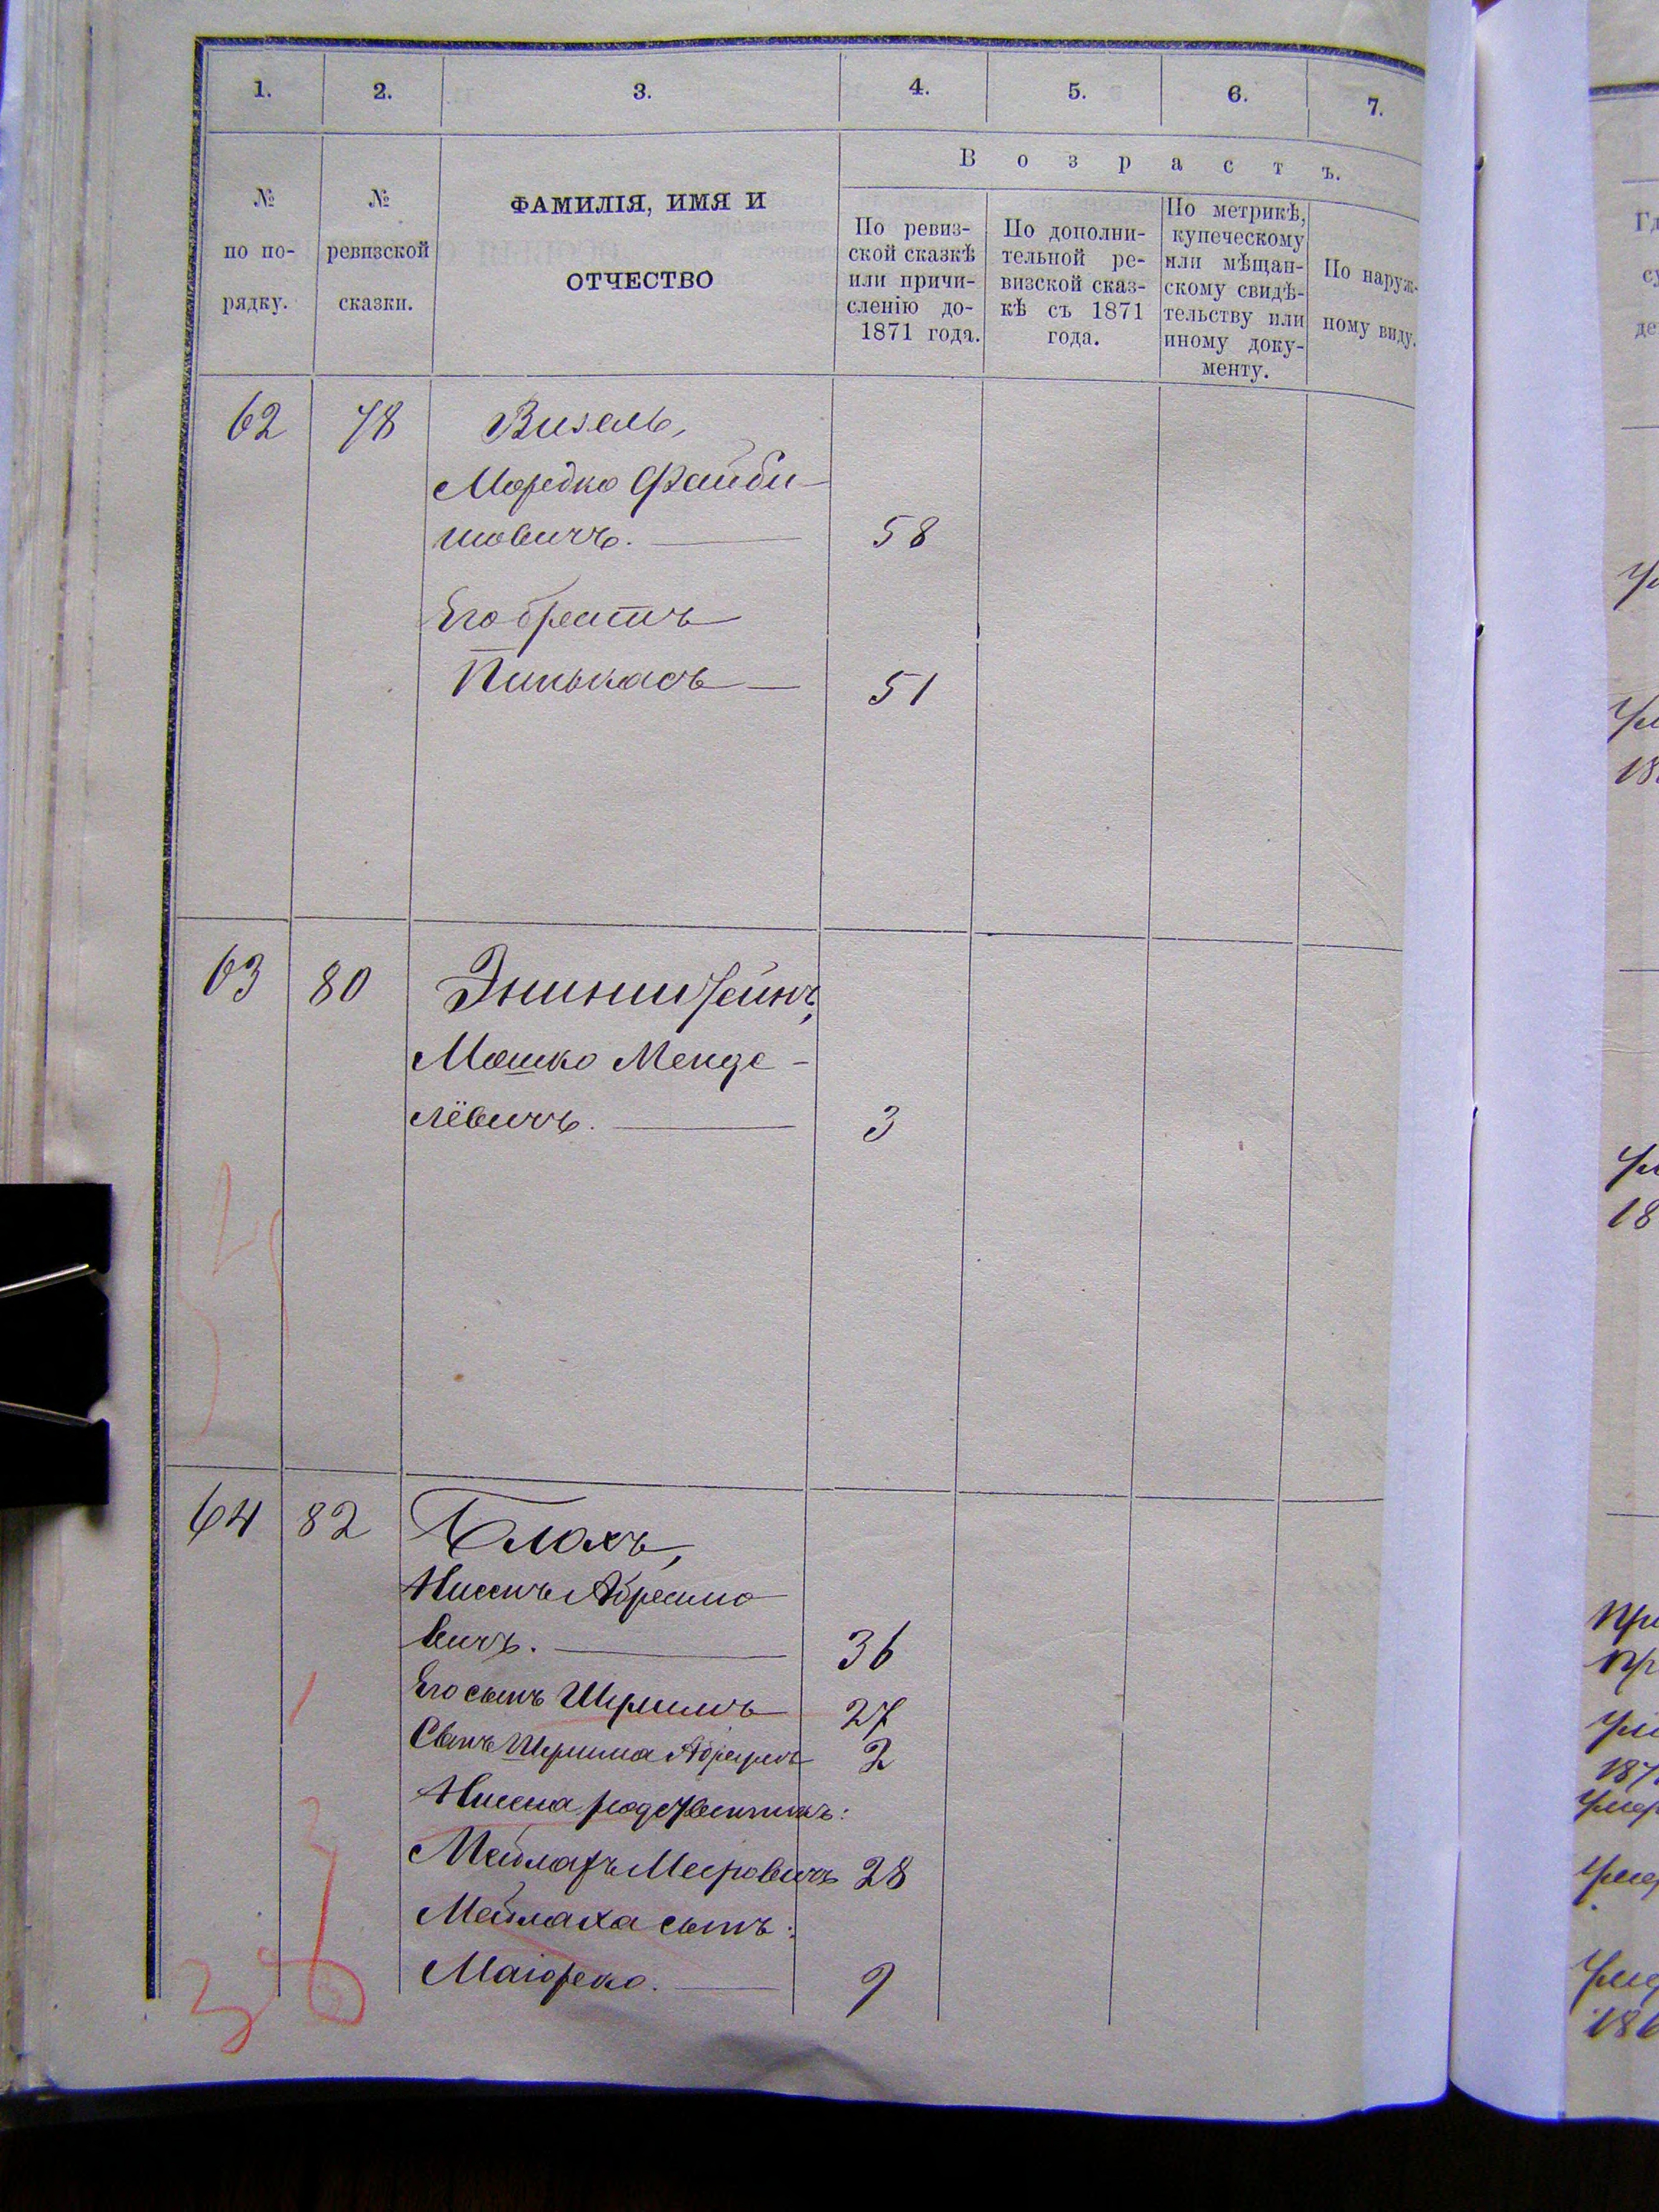 1. 2. 3. 4. 5. 6. 7.
В о з р а с т ъ.
№
по по-
рядку.
№
ревизской
сказки.
ФАМИЛІЯ, ИМЯ И
ОТЧЕСТВО
По ревиз-
ской сказкѣ
или причи-
сленію до-
1871 года.
По дополни-
тельной ре-
визской сказ-
кѣ съ 1871
года.
По метрикѣ,
купеческому
или мѣщан-
скому свидѣ-
тельству или
иному доку-
менту.
По наруж-
ному виду.
62 78 Визель,
Мордко Файби-
шовичъ. 58
Его братъ
Пинькасъ 51
63 80
Мошко Менде-
лёвичъ. 3
64 82 Блохъ,
Ниссинъ Абрамо
вичъ. 36
Его сынъ Шлиома 27
Сынъ Абрамъ 2
Нисена родственникъ:
Мейлахъ Меировичъ 28
Мейлаха сынъ:
Маіорко. 9